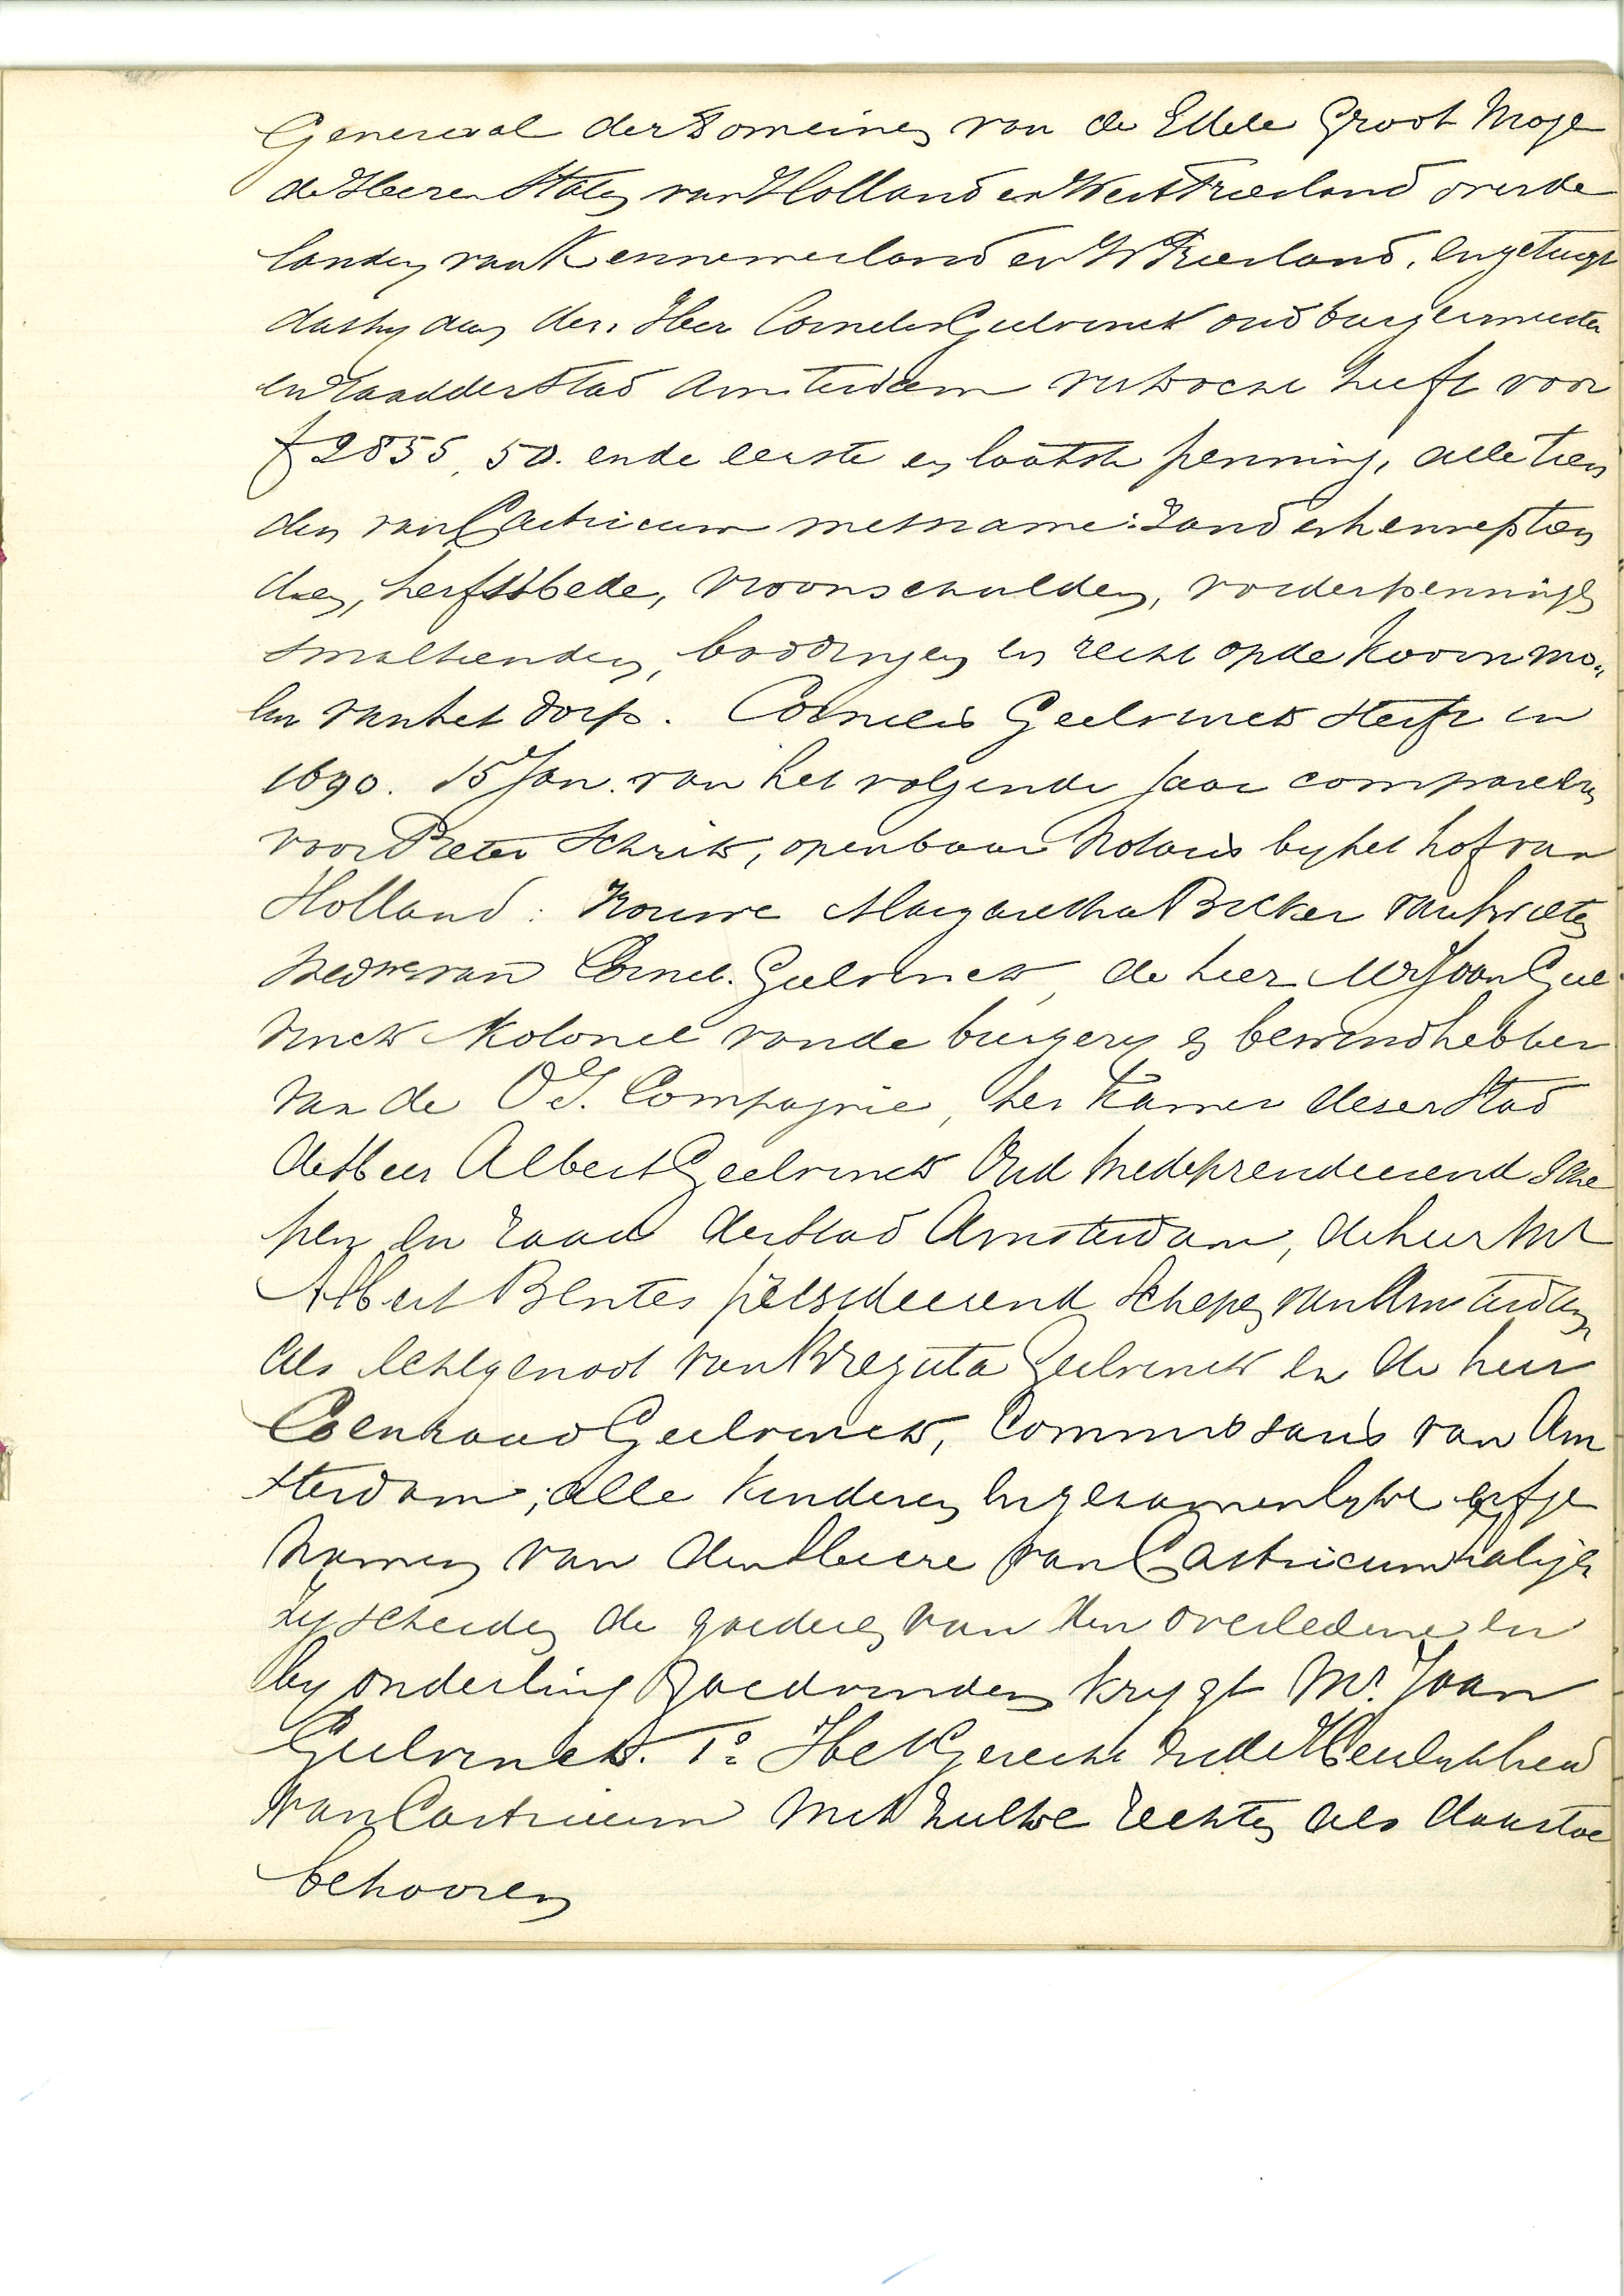 Generaal der Domeinen van de Edele Groot Moge
de Heeren Staten van Holland en West Friesland over de
landen van Kennemerland en W Friesland. en getuigt
dat hy aan den Heer Cornelis Geelvinck oud burgermeester
en raad der stad Amsterdam verkocht heeft voor
f 2855,50. ende eerste en laatste penning, alle tien
den van Castricum met name: Zand en hennep tien
den, herfstbede, vroonschulden, voederpenningen
smaltienden, boddingen en recht op de Koornmo„
len van het dorp. Cornelis Geelvinck sterft in
1690. 15 Jan. van het volgende jaar compareeren
voor Pieter Schrick, openbaar Notaris by het hof van
Holland: Vrouwe Margaretha Bicker van Swieten
Wedwe van Cornel. Geelvinck, de heer Mr Joan Geel
vinck Kolonel van de burgery en bewindhebber
van de O.I. Compagnie, ter Kamer dezer Stad
de Heer Albert Geelvinck Oud Medeprendeerend Sche
pen en raad der stad Amsterdam, de heer Mr
Albert Bentes presideerend Schepen van Amsterdam
als echtgenoot van Bregitta Geelvinck en de heer
Coenraad Geelvinck, Commissaris van Am
sterdam; alle kinderen en gezamenlyke erfge
namen van den Heere van Castricum zaliger
Zy scheiden de goederen van den overledene en
by onderling goedvinden krygt Mr. Joan
Geelvinck. 1o Het Gerecht en de Heerlykheid
van Castricum met zulke rechten als daartoe
behooren